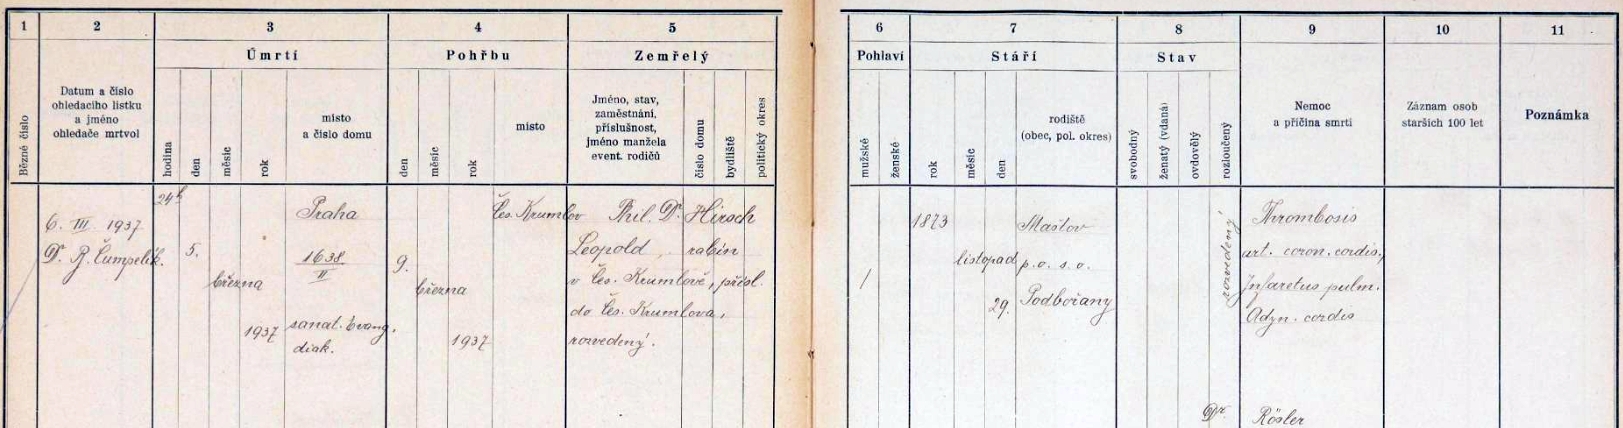 1 2 3 4 5
Úmrtí Pohřbu Zemřelý
Běžné číslo
Datum a číslo
ohledacího lístku
a jméno
ohledače mrtvol
hodina den měsíc rok
místo
a číslo domu
den měsíc rok místo
Jméno, stav,
zaměstnání,
příslušnost,
jméno manžela
event. rodičů
číslo domu bydliště politický okres
24h
6. III 1937
Dr. R. Čumpelík.
5.
března
1937
Praha
1638
II
sanat. Evang.
diak.
9.
března
1937
Čes. Krumlov
Phil. Dr. Hirsch
Leopold, rabín
v Čes. Krumlově, přísl.
do Čes. Krumlova,
rozvedený.
6 7 8 9 10 11
Pohlaví Stáří Stav
mužské ženské
rok měsíc den
rodiště
(obec, pol. okres)
svobodný ženatý (vdaná) ovdovělý rozloučený
Nemoc
a příčina smrti
Záznam osob
starších 100 let
Poznámka
/
1873
listopad
29.
Maštov
p. o. s. o.
Podbořany
rozvedený
Thrombosis
art. coron. cordis,
Infarctus pulm.
Adyn. cordis
Dr. Rösler